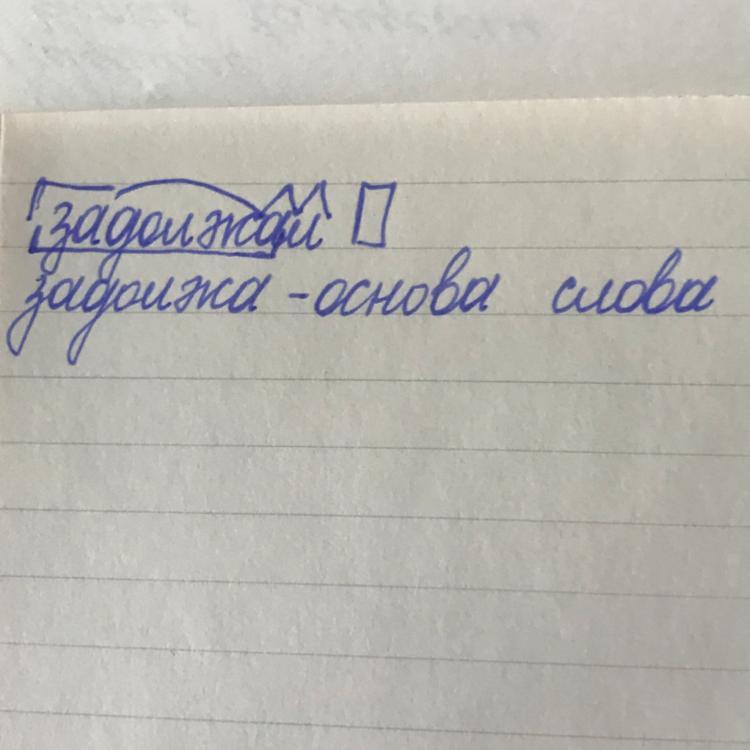 задолжал
задолжа - основа слова